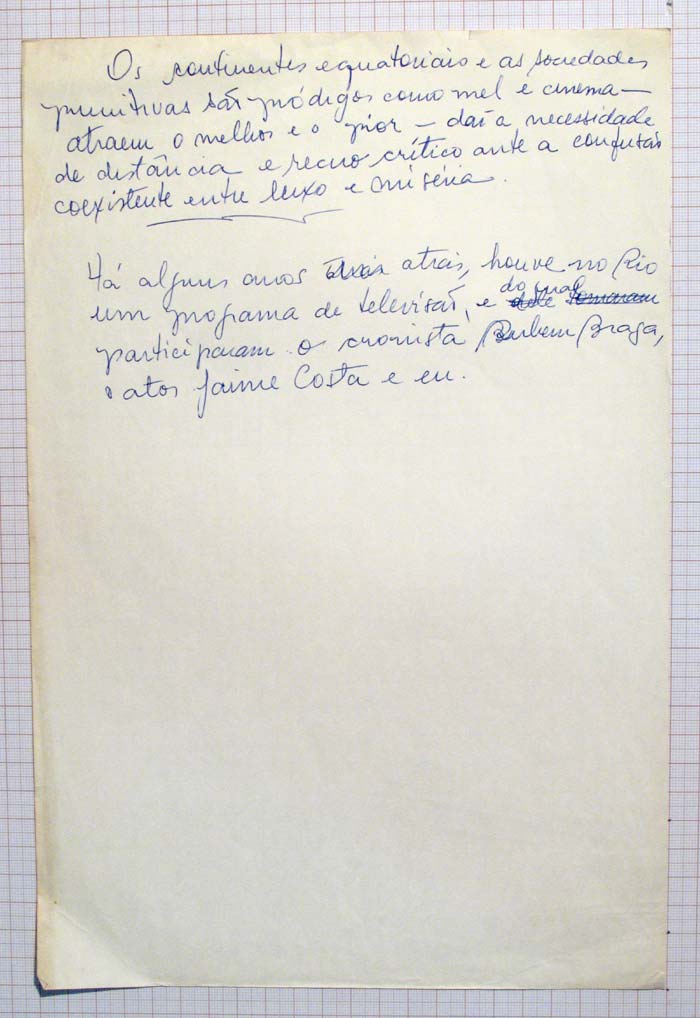 Os continentes equatoriais e as sociedades
primitivas são pródigos como mel e cinema —
atraem o melhor e o pior — daí a necessidade
de distância e recuo crítico ante a confusão
coexistente entre luxo e miséria.
Há alguns anos atrás, houve no Rio
um programa de televisão, e do qual
participaram o cronista Rubem Braga,
o ator Jaime Costa e eu.